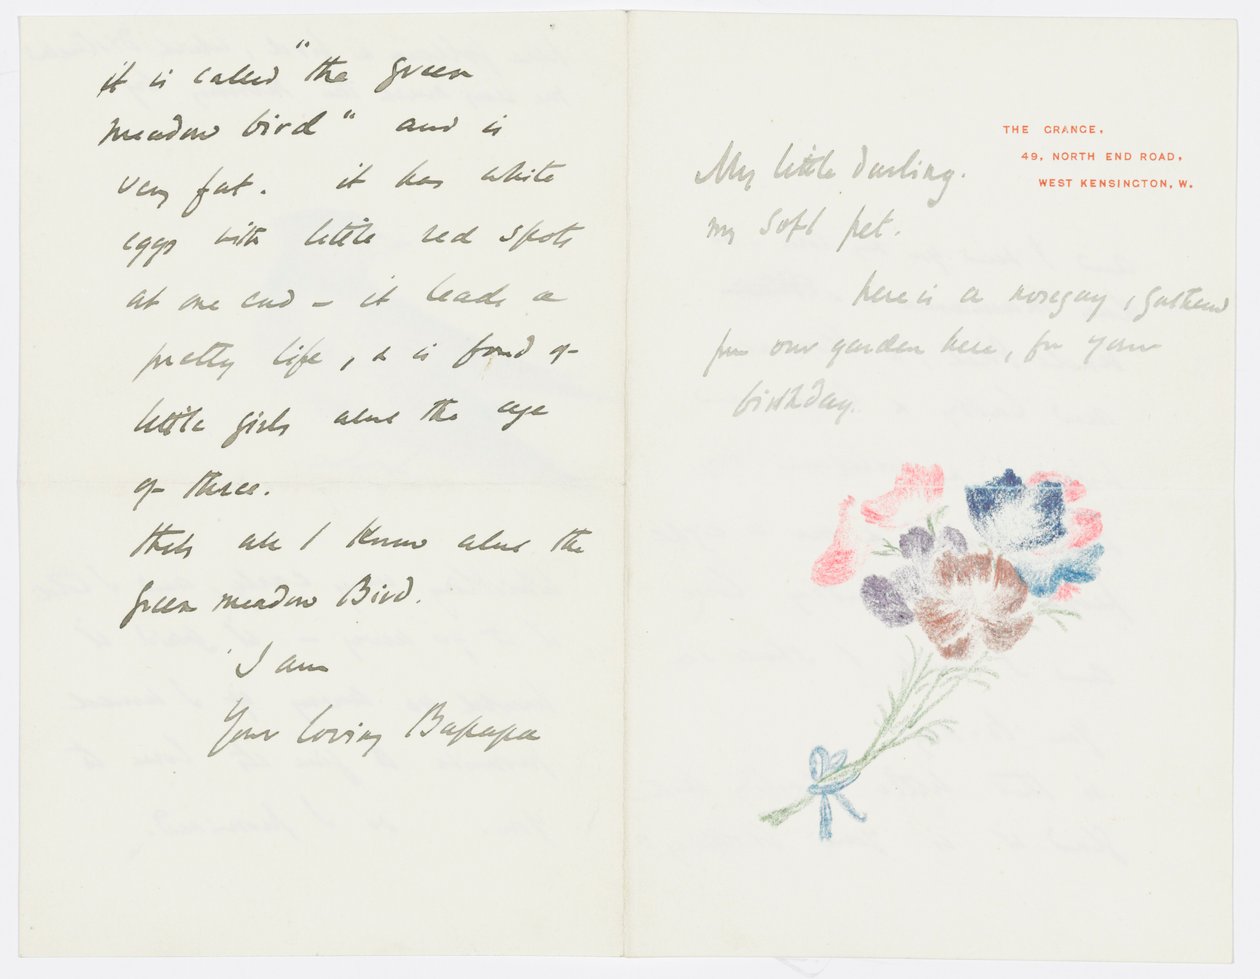 it is called "the green
meadow bird" and is
very fat. it has white
eggs with little red spots
at one end – it leads a
pretty life, & is fond of
little girls about the age
of three.
thats all I know about the
green meadow Bird.
I am
Your loving Bapapa
THE GRANGE,
49, NORTH END ROAD,
WEST KENSINGTON, W.
My little darling.
my soft pet.
here is a nosegay I gathered
from our garden here, for your
birthday.